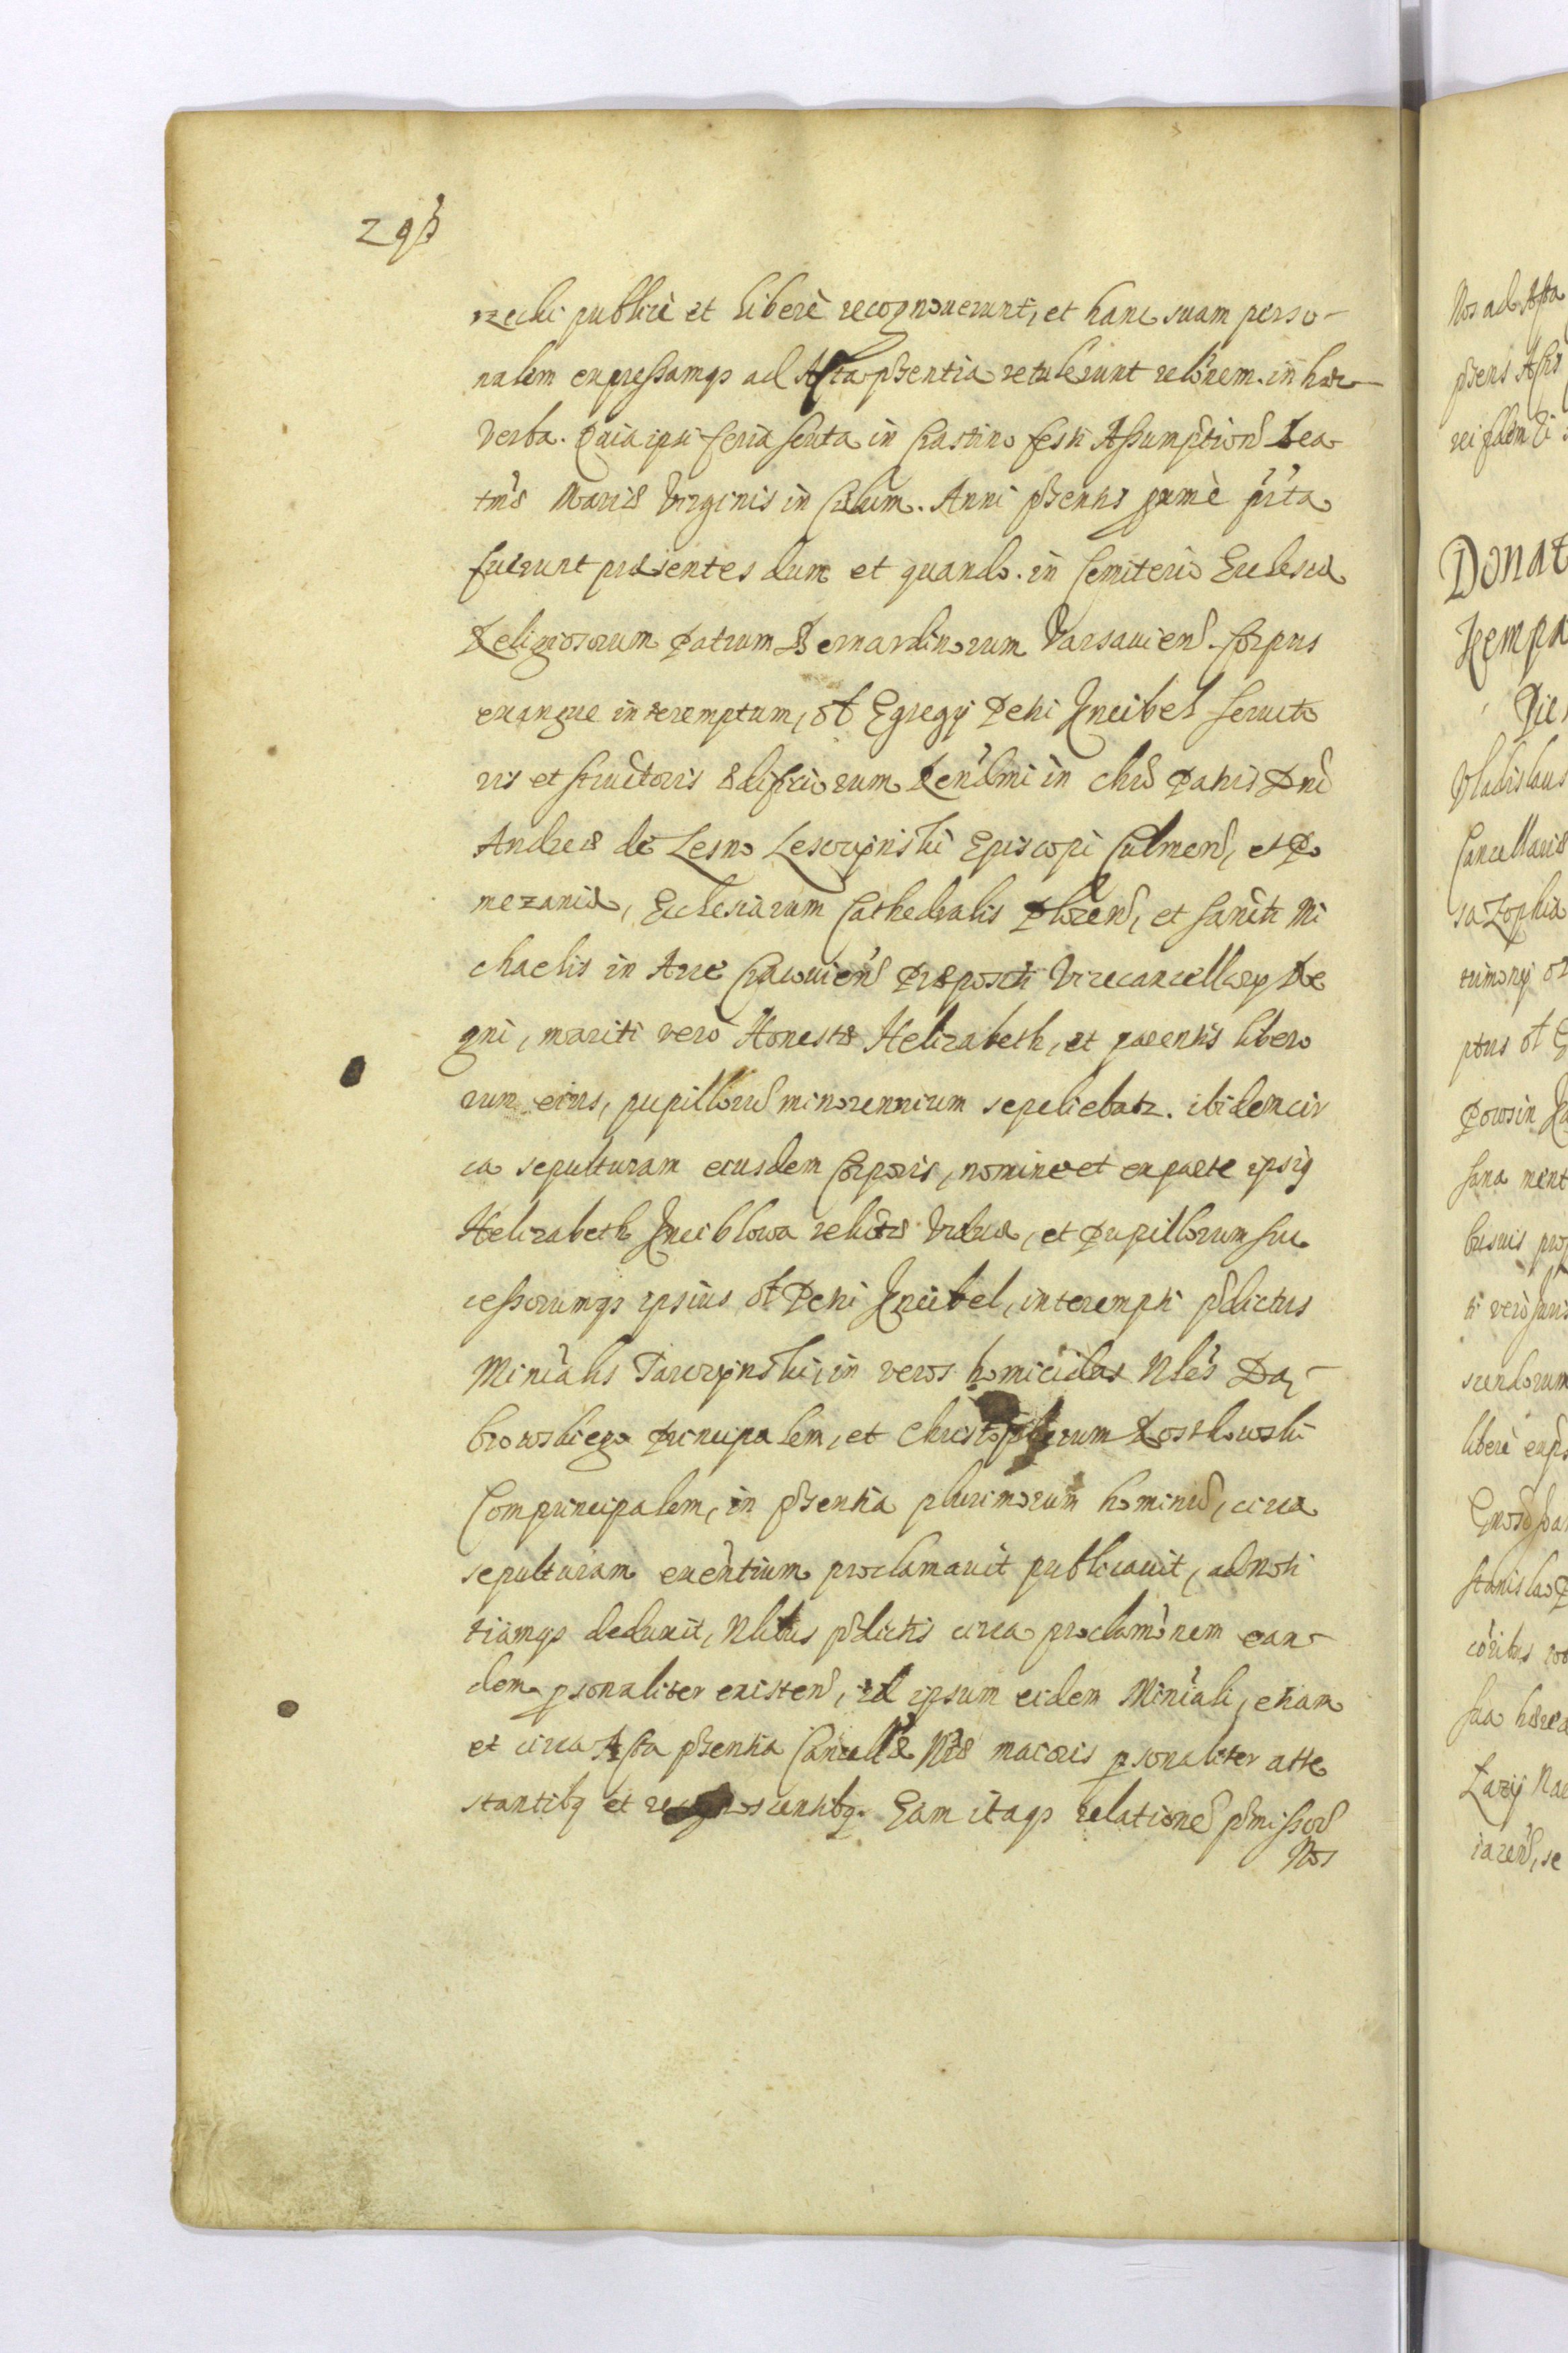 298
rzecki publicè et liberè recognouerunt, et hanc suam perso-
nalem expressamqȝ ad Acta pntia retulerunt relõnem. in hæc
verba. Quia ipsi feria sexta in Crastino festi Assumption Bea
tmæ Mariæ Virginis in Cælum. Anni pntis
fuerunt præsentes dum et quando. in Cemiterio Ecclesiæ
Religiosorum Patrum Bernardinorum Varsauien. Corpus
exangue interemptum, ol Egregij Petri Kneibel seruito
ris et structoris ædificiorum Rendmi in chro Patris Dni
Andreæ de Lesno Lesczynski Episcopi Culmen, et Po
mezaniæ, Ecclesiarum Cathedralis Plocen, et Sancti Mi
chaelis in Arce Cracouien Præpositi Vicecancellarij Re
gni, mariti verò Honestæ Helizabeth, et parentis libero
rum eius, pupillorũ minorennium sepeliebatr. ibidem cir
ca sepulturam eiusdem Corporis, nomine et ex parte ipsiq
Helizabeth Kneiblowa relictæ Viduæ, et Pupillorum suc
cessorumqȝ ipsius ol Petri Kneibel, interempti pdictus
Minialis Tarczynski, in veros homicidas Nles Dą-
browskiego Principalem, et Christopherum Rostkowski
Comprincipalem, in pntia plurimorum hominũ, circa
sepulturam exentium proclamauit publicauit, ad noti
tiamqȝ deduxit, Nlibus pdictis circa proclamõnem ean-
dem psonaliter existen, id ipsum eidem Miniali, etiam
et circa Acta pntia Cancellæ Nræ maioris psonaliter atte
stantibq et recognoscentibq. Eam itaqȝ relationẽ pmissorũ
Nos
Nos ad Acta
pntens Actis
rei fidem
Donat
Kempa
Die
Vladislaus
Cancellariæ
sa Zophia
trimonij
ptus ol
Powsin
sana ment
busuis
ti verò Juris
scendorum
liberè
Stanislao
coribus
sua hæred
Lazy